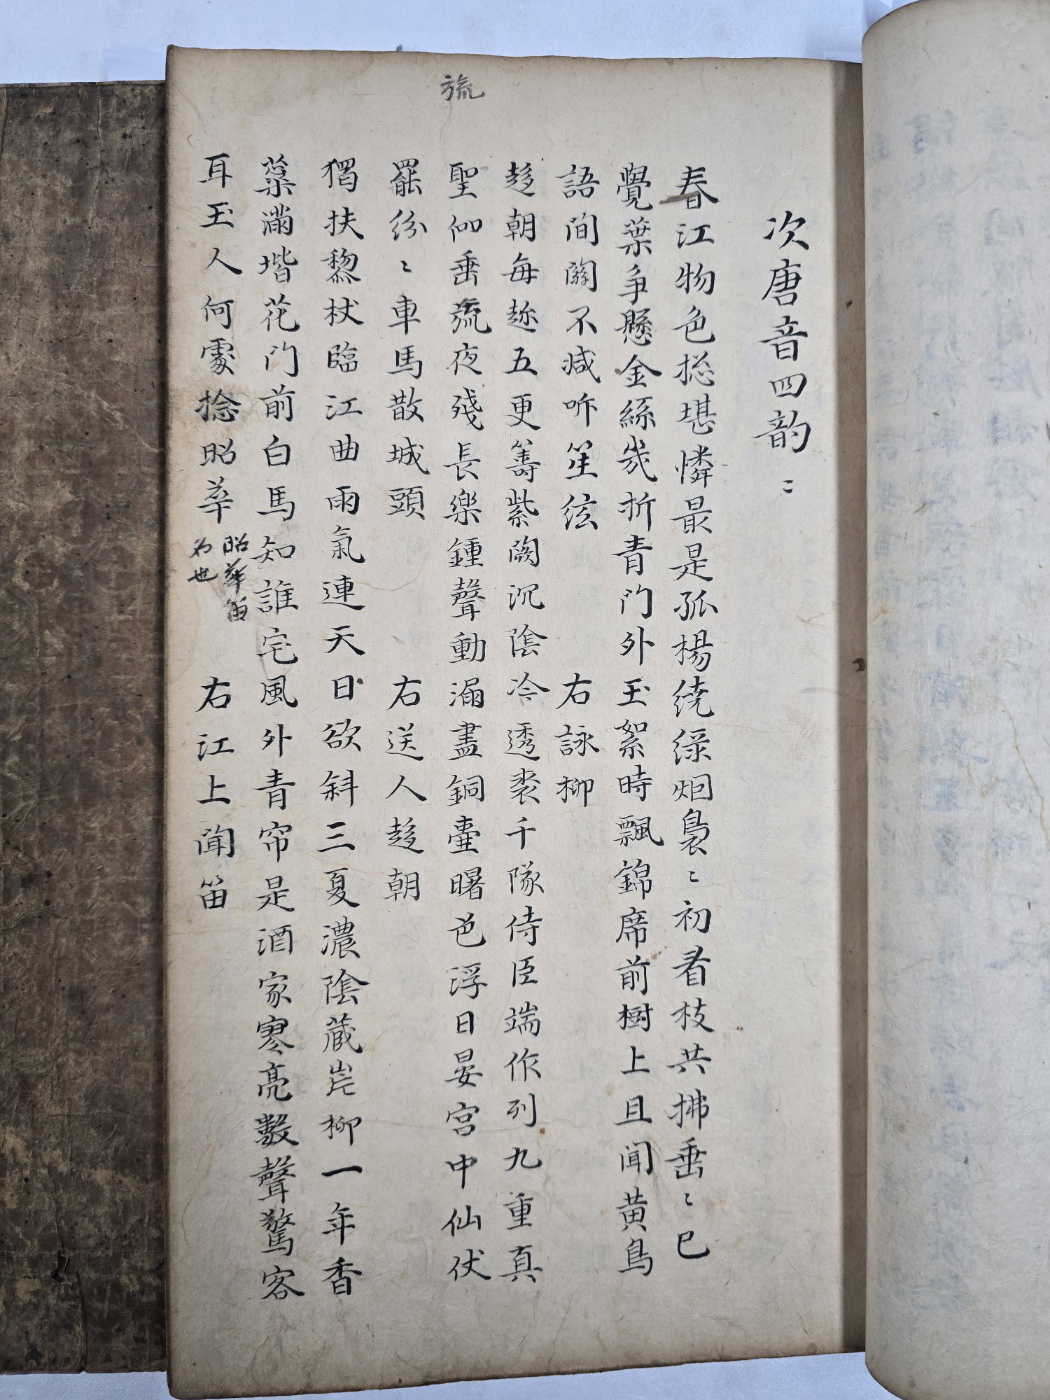 旒
次唐音四韵〻
春江物色捴堪憐最是孤楊繞綠烟裊〻初看枝共拂垂〻已
覺葉爭懸金絲幾折青門外玉絮時飄錦席前樹上且聞黃鳥
語間關不减咔笙絃 右詠柳
趍朝每趂五更籌紫闕沉陰冷透裘千隊侍臣端作列九重真
聖仰垂旒夜殘長樂鍾聲動漏盡銅壷曙色浮日晏宮中仙仗
罷份〻車馬散城頭 右送人趍朝
獨扶藜杖臨江曲雨氣連天日欲斜三夏濃陰藏岸柳一年香
蘂滿堦花門前白馬知誰宅風外青帘是酒家寥亮數聲驚客
耳玉人何處捻昭華 昭華笛名也 右江上聞笛